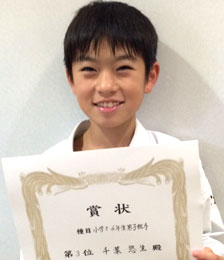 賞状
種目 小学5・6年生男子組手
第3位 千葉悠生殿